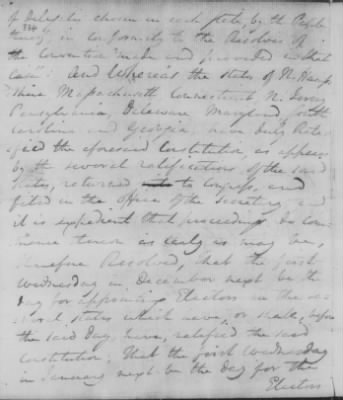 of Delegates chosen in each state, by the People
thereof, in conformity to the Resolves of
the Convention made and provided in that
case": And Whereas the states of N. Hamp
shire Massachusetts Connecticut N. Jersey
Pensylvania, Delaware Maryland, South
Carolina and Georgia, have duly Rati-
fied the aforesaid Constitution, as appears
by the several ratifications of the said
States, returned to Congress, and
filed in the office of the secretary and
it is expedient that proceedings do com-
mence thereon as early as may be,
therefore Resolved, That the first
Wednesday in December next be the
day for appointing Electors in the se-
veral states which have, or shall, before
the said day, have, ratified the said
Constitution; That the first Wednesday
in January next be the day for the
Electors